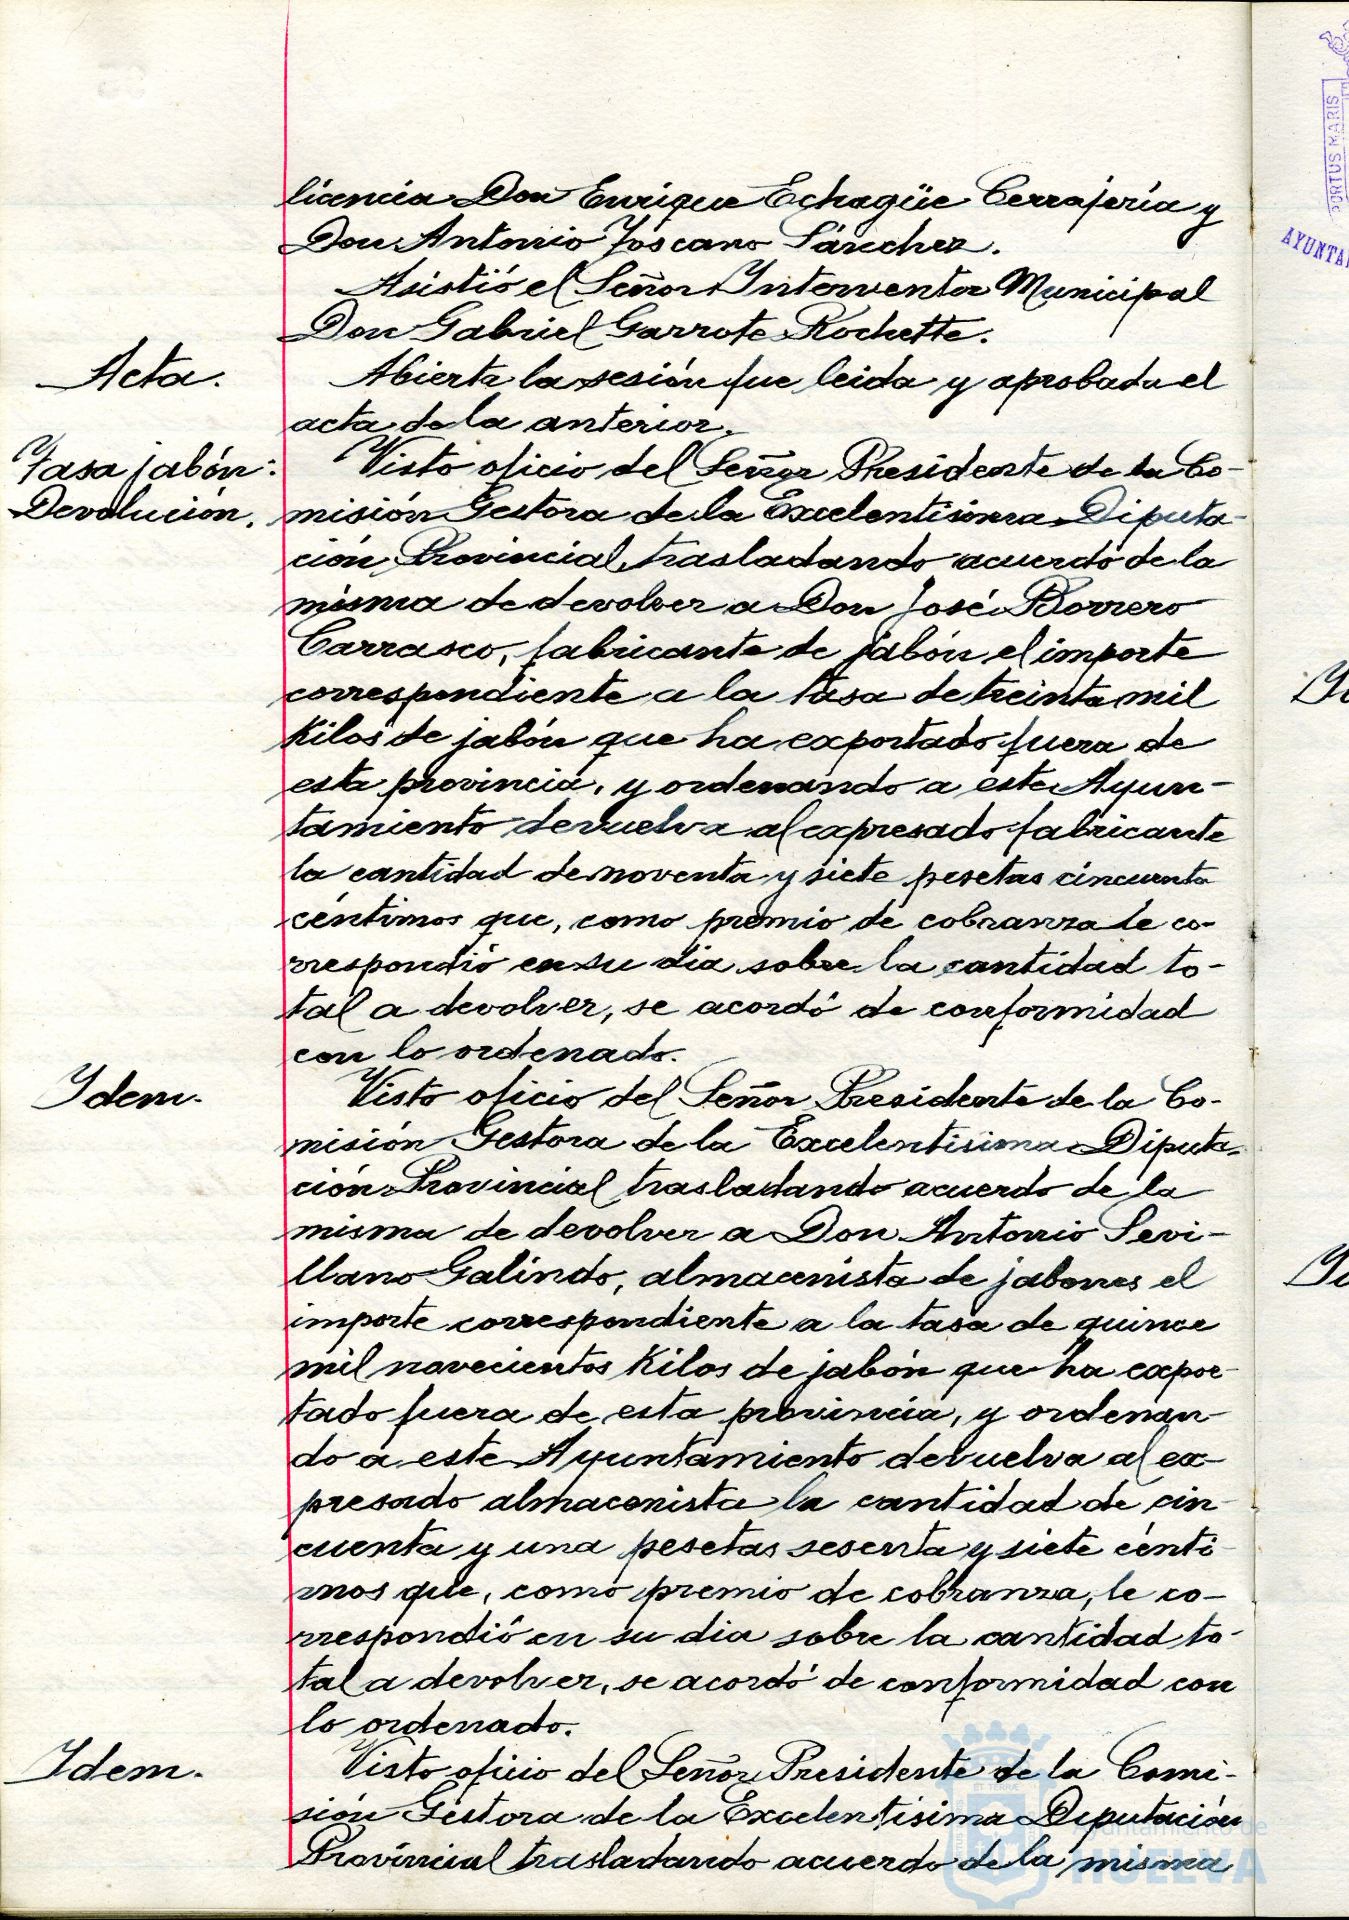 licencia Don Enrique Echagüe Cerrajería y
Don Antonio Toscano Sánchez.
Asistió el Señor Interventor Municipal
Don Gabriel Garrote Rochette.
Acta.
Abierta la sesión fue leida y aprobada el
acta de la anterior.
Tasa jabón:
Devolución.
Visto oficio del Señor Presidente de la Co-
misión Gestora de la Excelentísima Diputa-
ción Provincial trasladando acuerdo de la
misma de devolver a Don José Borrero
Carrasco, fabricante de jabón el importe
correspondiente a la tasa de treinta mil
kilos de jabón que ha exportado fuera de
esta provincia, y ordenando a este Ayun-
tamiento devuelva al expresado fabricante
la cantidad de noventa y siete pesetas cincuenta
céntimos que, como premio de cobranza le co-
rrespondió en su dia sobre la cantidad to-
tal a devolver, se acordó de conformidad
con lo ordenado.
Idem.
Visto oficio del Señor Presidente de la Co-
misión Gestora de la Excelentísima Diputa-
ción Provincial trasladando acuerdo de la
misma de devolver a Don Antonio Sevi-
llano Galindo, almacenista de jabones el
importe correspondiente a la tasa de quince
mil novecientos kilos de jabón que ha expor-
tado fuera de esta provincia, y ordenan-
do a este Ayuntamiento devuelva al ex-
presado almacenista la cantidad de cin-
cuenta y una pesetas sesenta y siete cénti-
mos que, como premio de cobranza, le co-
rrespondió en su dia sobre la cantidad to-
tal a devolver, se acordó de conformidad con
lo ordenado.
Idem.
Visto oficio del Señor Presidente de la Comi-
sión Gestora de la Excelentísima Diputación
Provincial trasladando acuerdo de la misma
PORTUS MARIS
Ayuntamiento de
HUELVA